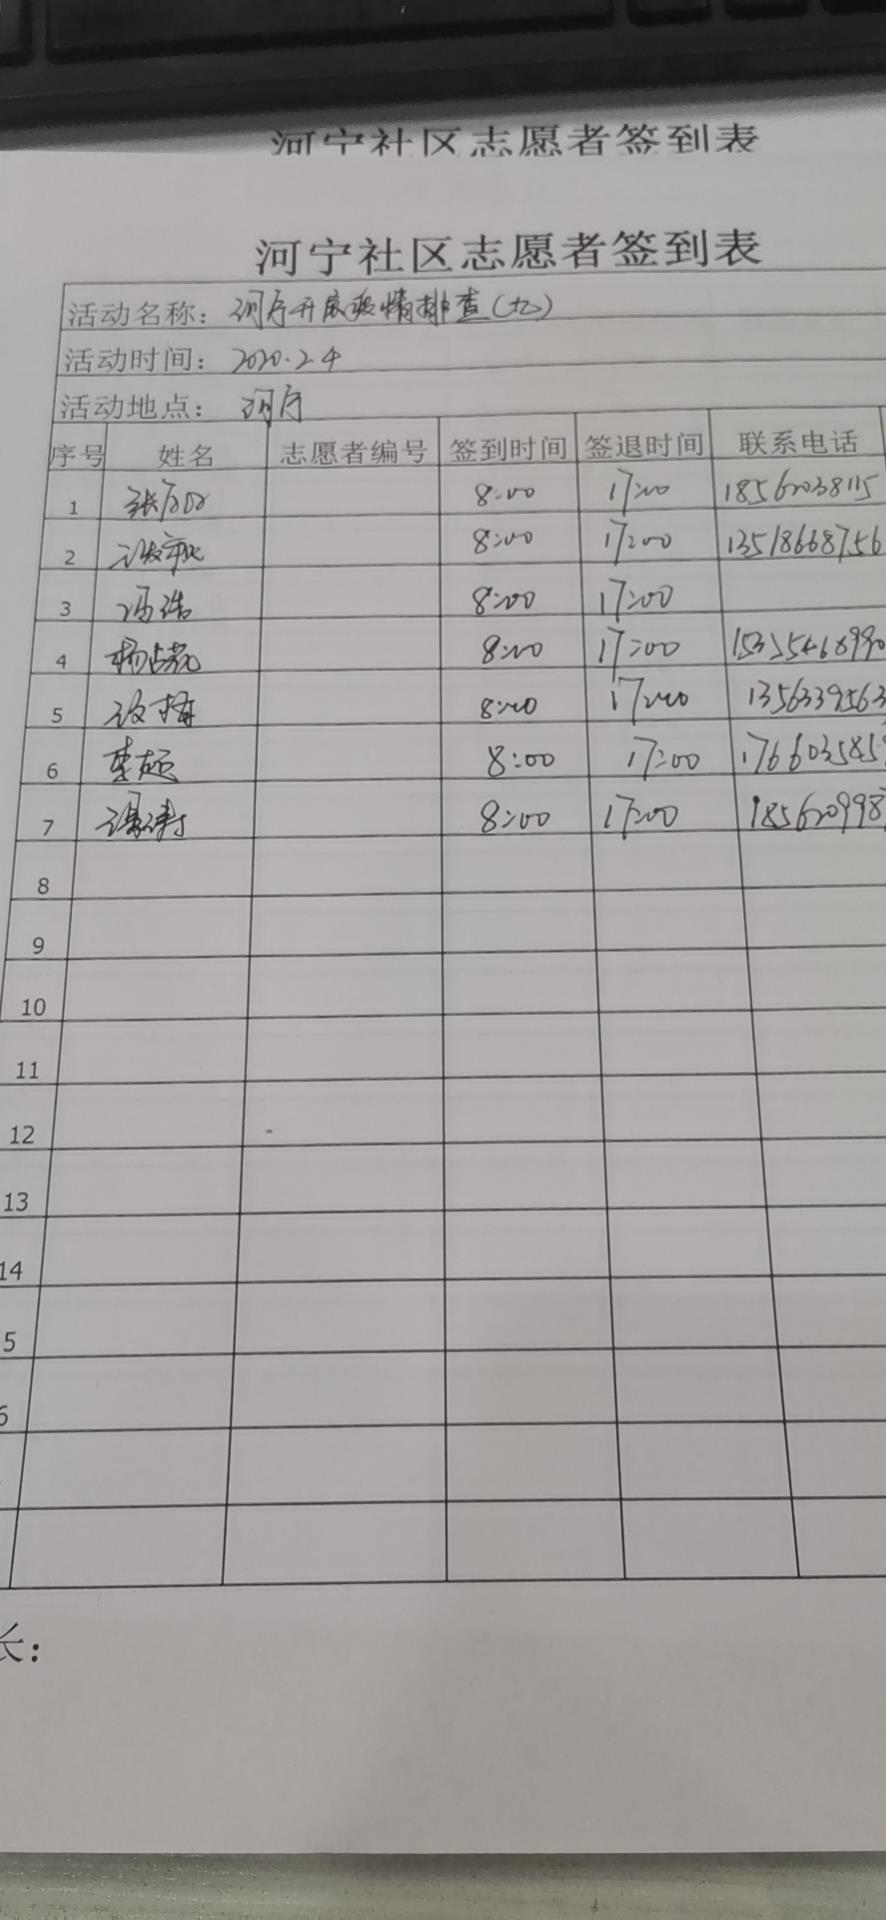 河宁社区志愿者签到表
河宁社区志愿者签到表
活动名称：河宁开展疫情排查（九）
活动时间：2020.2.4
活动地点：河宁
序号 姓名 志愿者编号 签到时间 签退时间 联系电话
1 8:00 17:00 18562038115
2 8:00 17:00 13518668756
3 冯浩 8:00 17:00
4 8:00 17:00
5 8:00 17:00 1356339563
6 8:00 17:00
7 8:00 17:00 185620998
8
9
10
11
12
13
14
5
6
长：